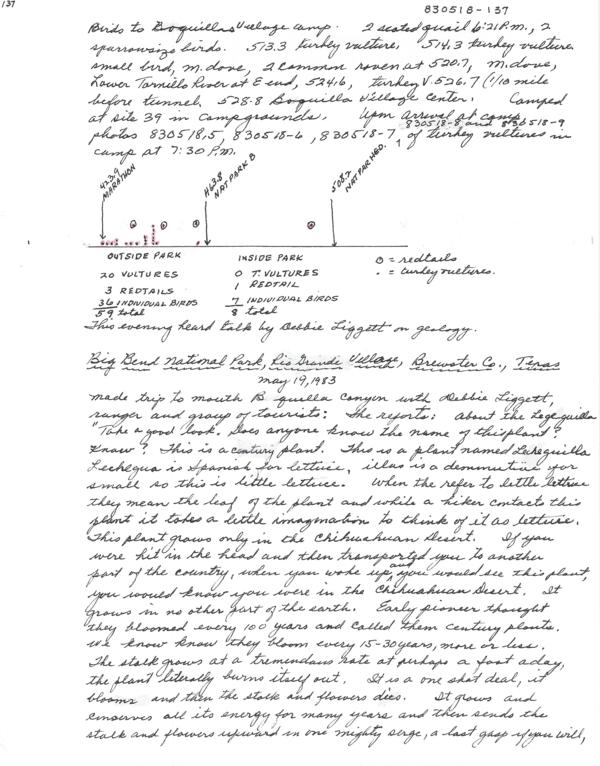 137
830518-137
Birds to Boquillas Village camp. 2 scated quail 6:21 P.M., 2
sparrowsize birds. 513.3 turkey vulture, 514.3 turkey vulture
small bird, m. dove, 2 common raven at 520.7, m. dove,
Lower Tornillo River at E end, 524.6, turkey V. 526.7 (1/10 mile
before tunnel. 528.8 Boquilla Village Center. Camped
at site 39 in campgrounds. Upon arrival at camp
830518-8 and 830518-9
photos 830518,5, 830518-6, 830518-7, of turkey vultures in
camp at 7:30 P.M.
423.9 MARATHON
463.8 NAT PARK B
508.7 NAT PAR HED.
OUTSIDE PARK INSIDE PARK 0 = redtails
20 VULTURES 0 T. VULTURES . = turkey vultures.
3 REDTAILS 1 REDTAIL
36 INDIVIDUAL BIRDS 7 INDIVIDUAL BIRDS
59 total 8 total
This evening heard talk by Debbie Liggett on geology.
Big Bend National Park, Rio Grande Village, Brewster Co., Texas
May 19, 1983
made trip to mouth B quilla Canyon with Debbie Liggett,
ranger and group of tourists: She reports: About the Lege quilla
"Take a good look. Does anyone know the name of this plant?
Know? This is a century plant. This is a plant named Lecheguilla
Lechegua is Spanish for lettuce, illas is a demmutive for
small so this is little lettuce. When the refer to little lettuce
they mean the leaf of the plant and while a hiker contacts this
plant it takes a little imagination to think of it as lettuce.
This plant grows only in the Chihuahuan Desert. If you
were hit in the head and then transported you to another
part of the country, when you woke up, and you would see this plant,
you would know you were in the Chihuahuan Desert. It
grows in no other part of the earth. Early pioneer thought
they bloomed every 100 years and called them century plants.
We know know they bloom every 15-30 years, more or less.
The stalk grows at a tremendous rate at perhaps a foot a day,
the plant literally burns itself out. It is a one shot deal, it
blooms and then the stalk and flowers dies. It grows and
conserves all its energy for many years and then sends the
stalk and flowers upward in one mighty serge, a last gasp if you will,